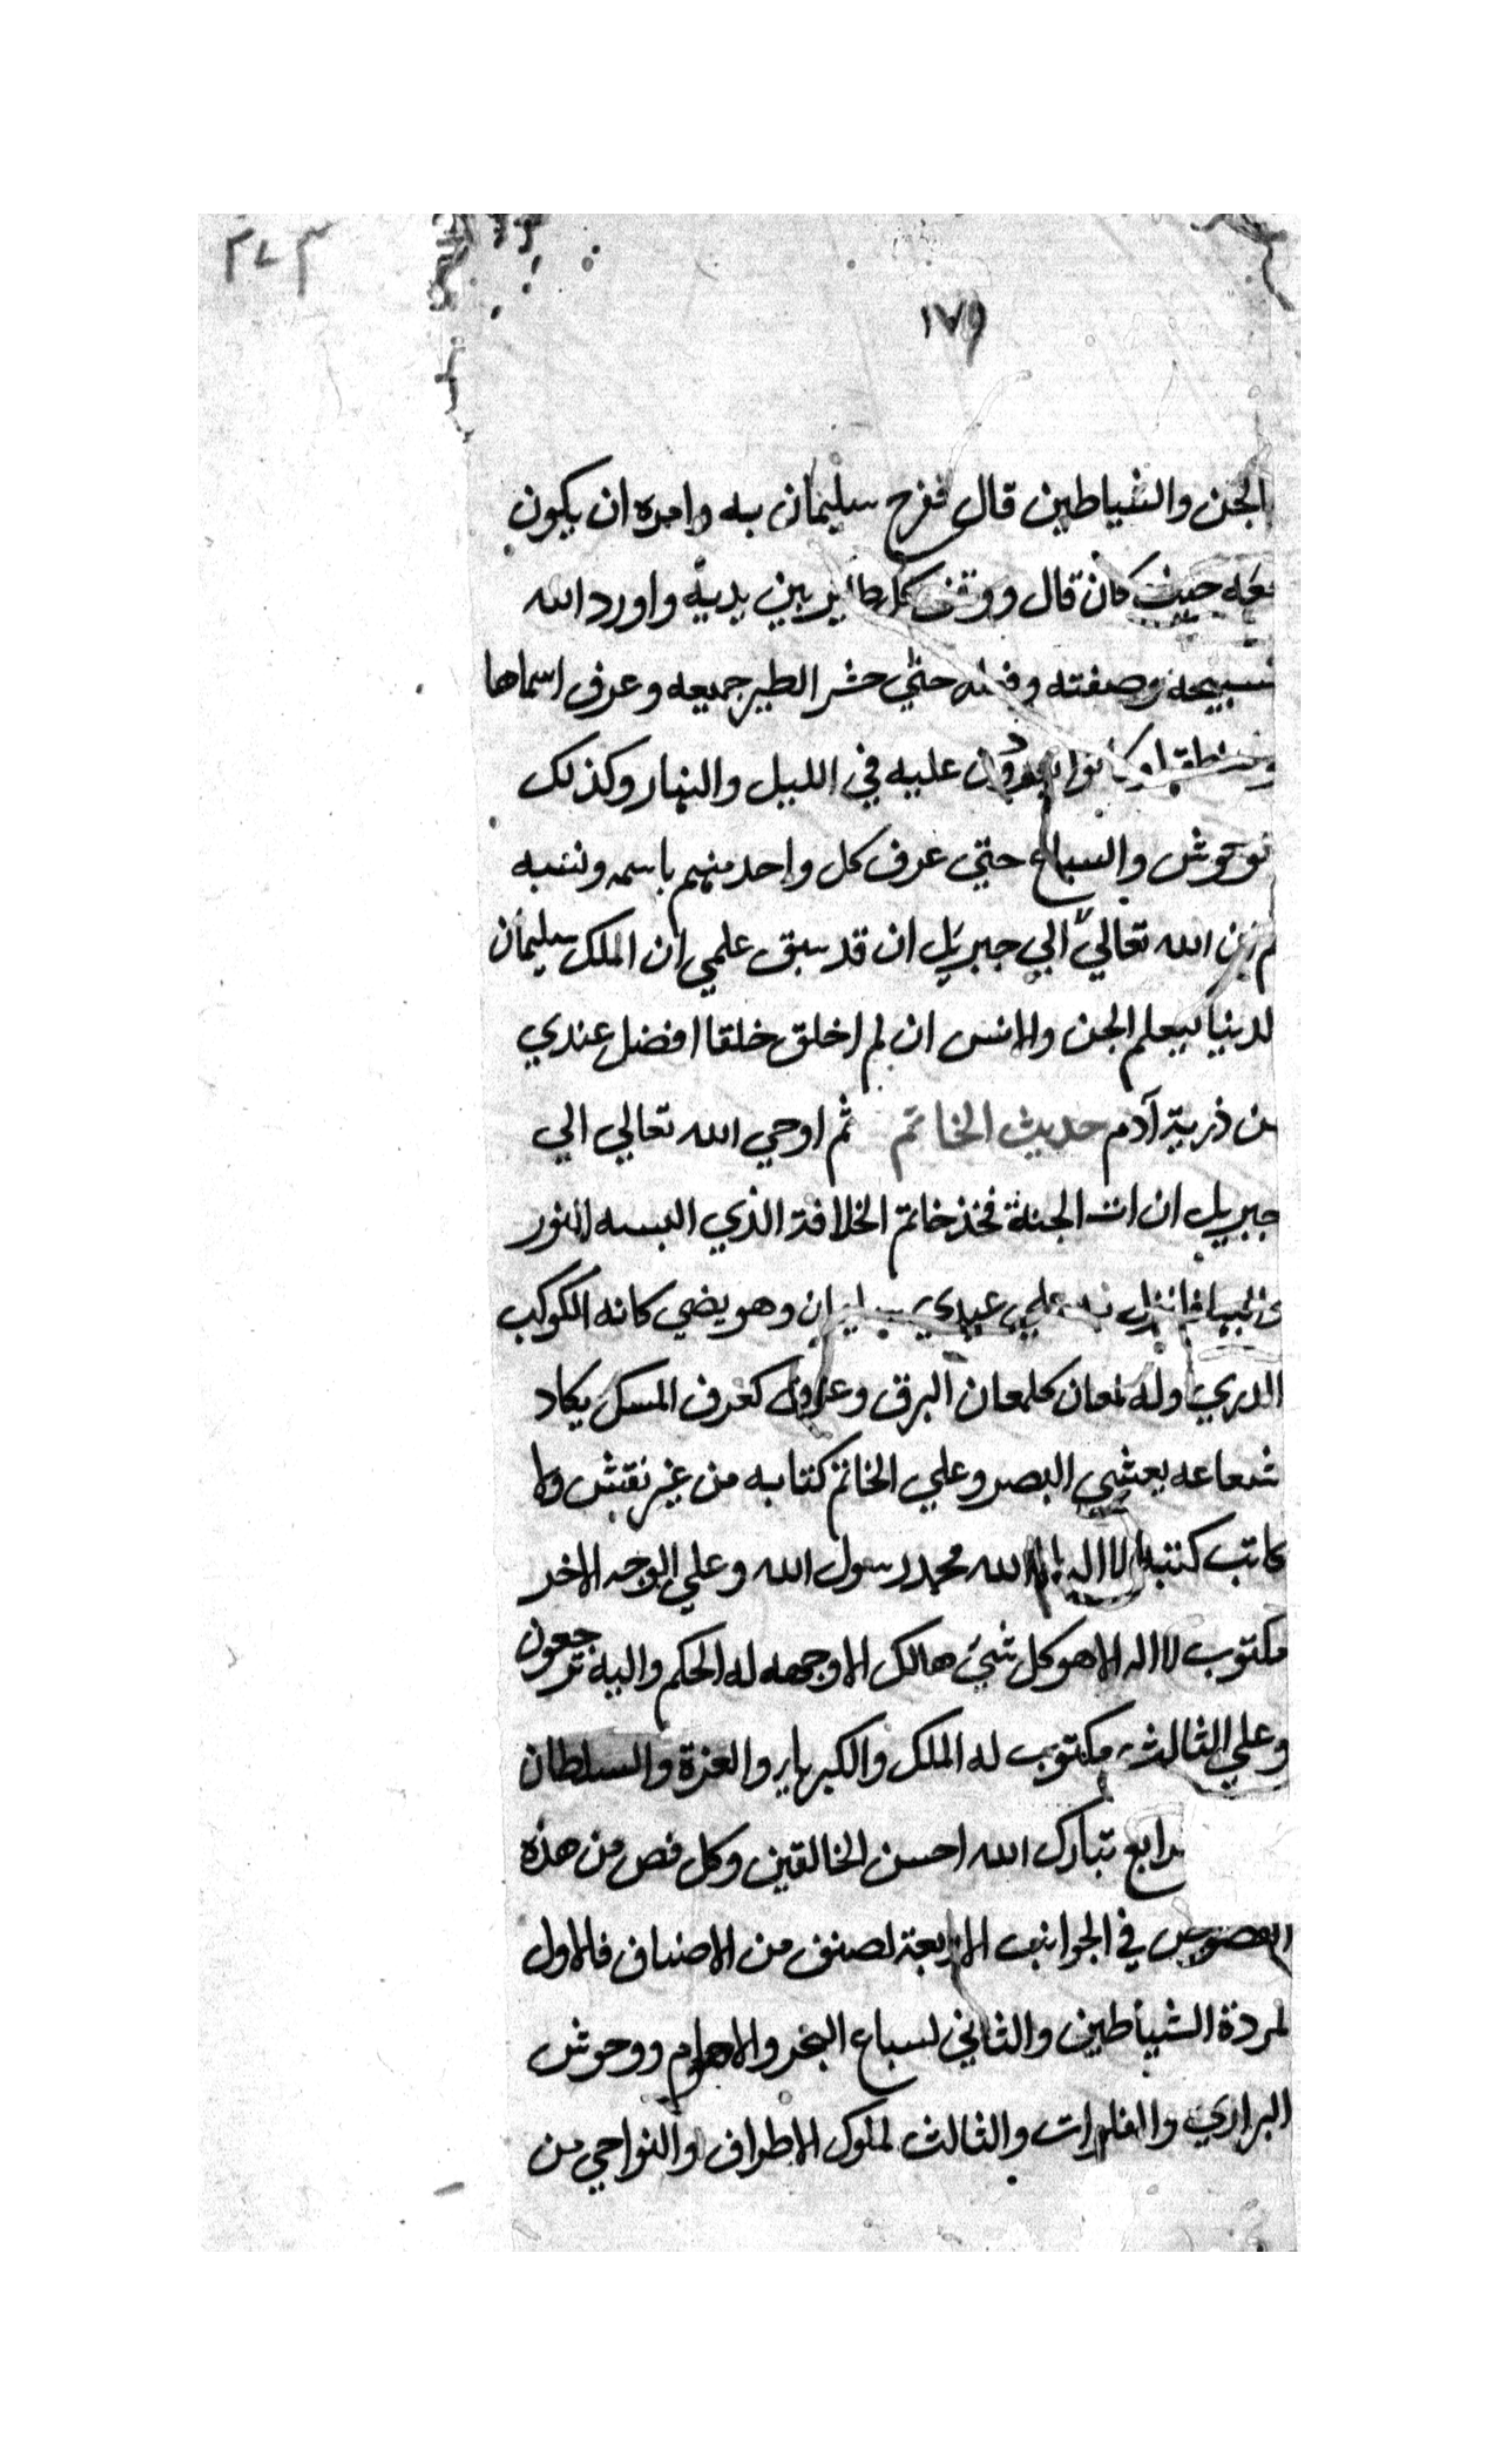 ٣٧٣
١٧٩
الجن والشياطين قال ففرح سليمان به وامره ان يكون
معه حيث كان قال ووقف كل طاير بين يديه واورد الله
تسبيحه وصفته حتي حشر الطير جميعه وعرف اسماها
عليه في الليل والنهار وكذلك
الوحوش والسباع حتي عرف كل واحد منهم باسمه ونسبه
الله تعالي الي جبريل ان قد سبق علمي ان الملك سليمان
الدنيا ليعلم الجن والانس ان لم اخلق خلقا افضل عندي
من ذرية آدم حديث الخاتم ثم اوحي الله تعالي الي
جبريل ان ات الجنة فخذ خاتم الخلافة الذي البسه النور
علي عبدي سليمان وهو يضي كانه الكوكب
الدري وله لمعان كلمعان البرق كعرف المسك يكاد
شعاعه يعشي البصر وعلي الخاتم كتابه من غير نقش ولا
كاتب كتبه لا اله الا الله محمد رسول الله وعلي الوجه الاخر
مكتوب لا اله الا هو كل شيء هالك الا وجهه له الحكم واليه ترجعون
وعلي الثالث مكتوب له الملك والكبرياء والعزة والسلطان
رابع تبارك الله احسن الخالقين وكل فص من هذه
الفصوص في الجوانب الاربعة لصنف من الاصناف فالاول
لمردة الشياطين والثاني لسباع البحر ووحوش
البراري والفلوات والثالث لملوك الاطراف والنواحي من